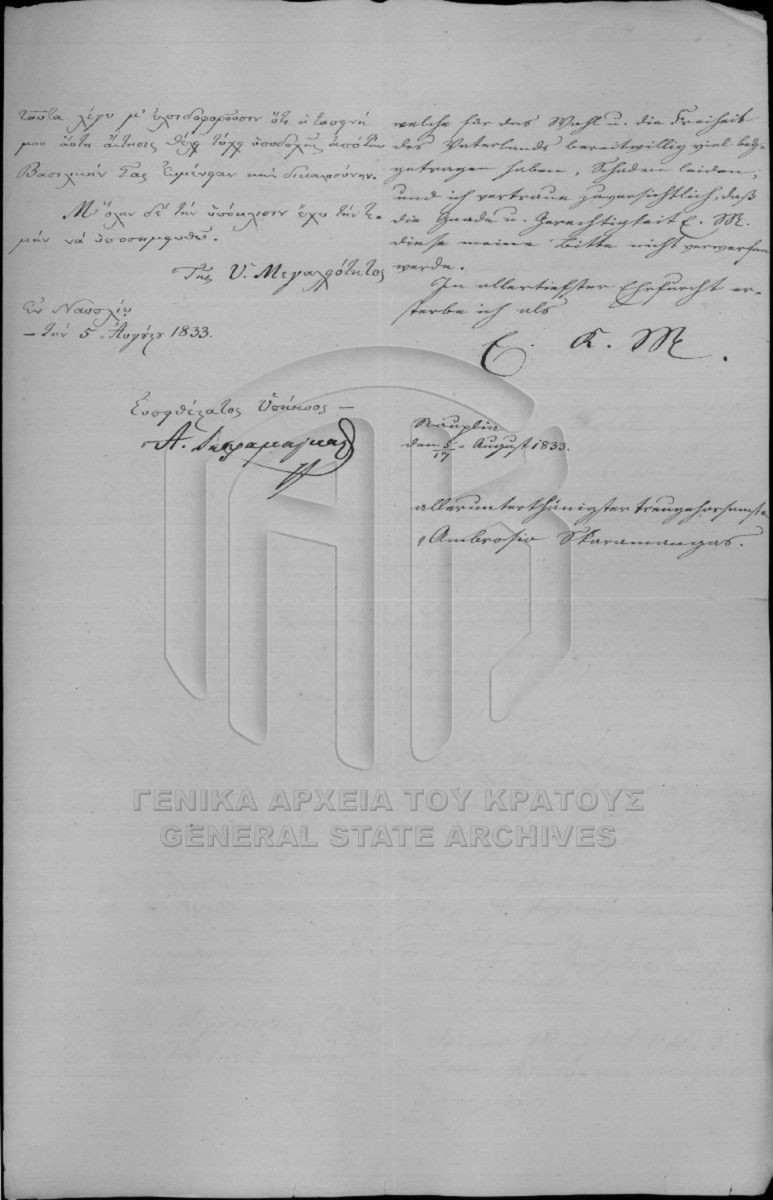 ταῦτα λέγω μ' ἐλπιδοφοροῦσιν ὅτι ἡ ταπεινή
μου αὕτη αἴτησις θέλει τύχῃ ὑποδοχῆς ἀπὸ τὴν
Βασιλικήν Σας Εὐμένειαν καὶ δικαιοσύνην.
Μ' ὅλην δὲ τὴν ὑπόκλισιν ἔχω τὴν τι-
μὴν νὰ ὑποσημειωθῶ.
Τῆς Ὑ. Μεγαλειότητος
Ἐν Ναυπλίῳ
– τὴν 5 Αὐγούστου 1833.
Εὐπειθέστατος Ὑπήκοος –
Α. Σκαραμαγκᾶς
welche für das Wohl u. die Freiheit
des Vaterlands bereitwillig viel bey-
getragen haben, Schaden leiden,
und ich vertraue zuversichtlich, daß
die Gnade u. Gerechtigkeit E. M.
diese meine Bitte nicht verwerfen
werde.
In allertiefster Ehrfurcht er-
sterbe ich als
E. K. M.
Nauplia
den 5/17 August 1833.
allerunterthänigster treugehorsamste
Ambrosio Skaramangas.
ΓΕΝΙΚΑ ΑΡΧΕΙΑ ΤΟΥ ΚΡΑΤΟΥΣ
GENERAL STATE ARCHIVES